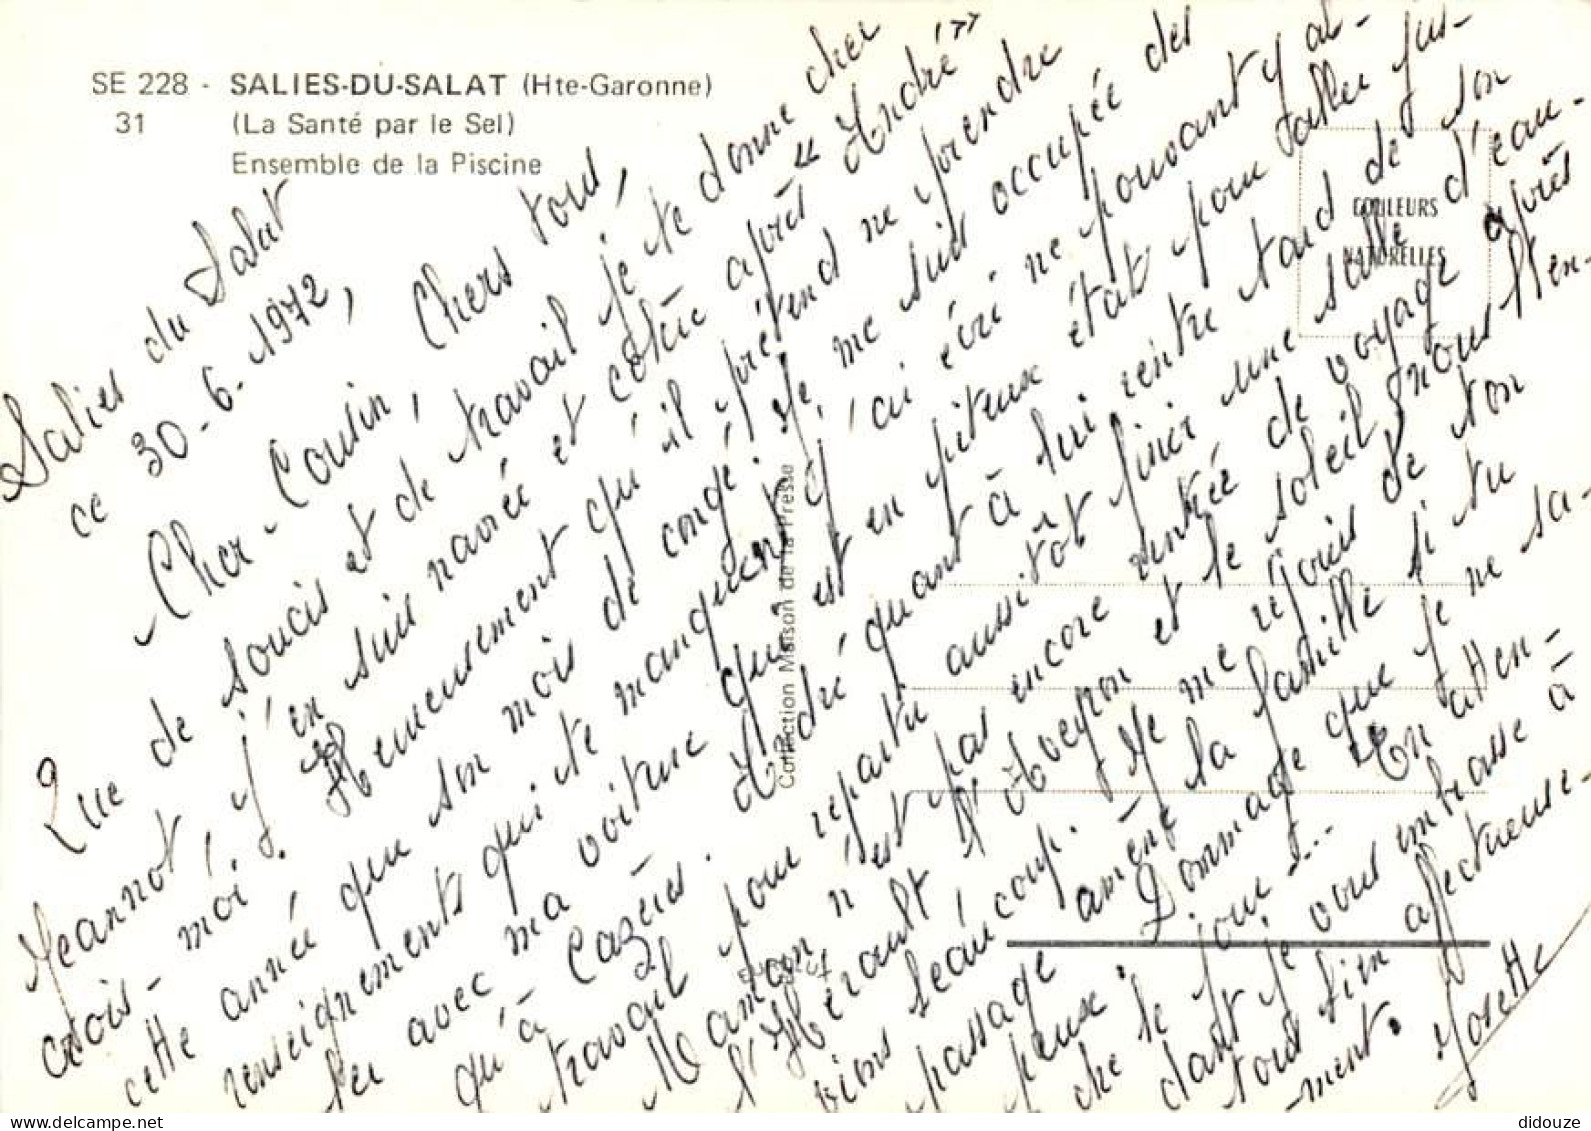 SE 228 - SALIES-DU-SALAT (Hte-Garonne)
31 (La Santé par le Sel)
Ensemble de la Piscine
COULEURS
NATURELLES
Collection Maison de la Presse
Salies du Salat
ce 30-6-1972,
Cher Cousin, Chers tous,
Que de soucis et de travail je te donne cher
Jeannot, j'en suis navrée et colère après "André"
crois-moi. Heureusement qu'il prétend ne prendre
cette année que son mois de congé. Je me suis occupée des
renseignements qui te manquent j'ai écri ne pouvant y al-
ler avec ma voiture qui est en piteux état pour aller jus-
qu'à Cazères. André quant à lui rentre tard de son
travail pour repartir aussitôt finir une salle d'eau.
Maman n'est pas encore rentrée de voyage après
l'Hérault l'Aveyron et le soleil nous
beaucoup. Je me réjouis de ton
passage amène la famille si tu
peux. Dommage que je ne sa-
che le jour... En atten-
dant je vous embrasse à
tous bien affectueuse-
ment. Josette
didouze